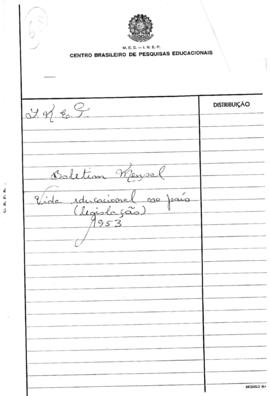 M. E. C. - I. N. E. P.
CENTRO BRASILEIRO DE PESQUISAS EDUCACIONAIS
DISTRIBUIÇÃO
Boletim Mensal
Vida educacional no país
(legislação)
1953